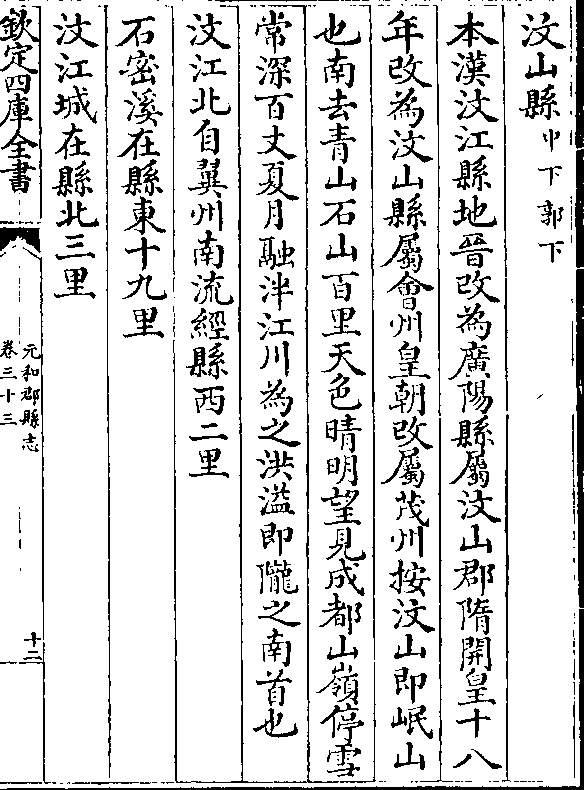 汶山縣中下郭下
本漢汶江縣地晉改為廣陽縣屬汶山郡隋開皇十八
年改為汶山縣屬會州皇朝改屬茂州按汶山即岷山
也南去青山石山百里天色晴明望見成都山嶺停雪
常深百丈夏月融泮江川為之洪溢即隴之南首也
汶江北自翼州南流經縣西二里
石密溪在縣東十九里
汶江城在縣北三里
欽定四庫全書
元和郡縣志
卷三十三
十二